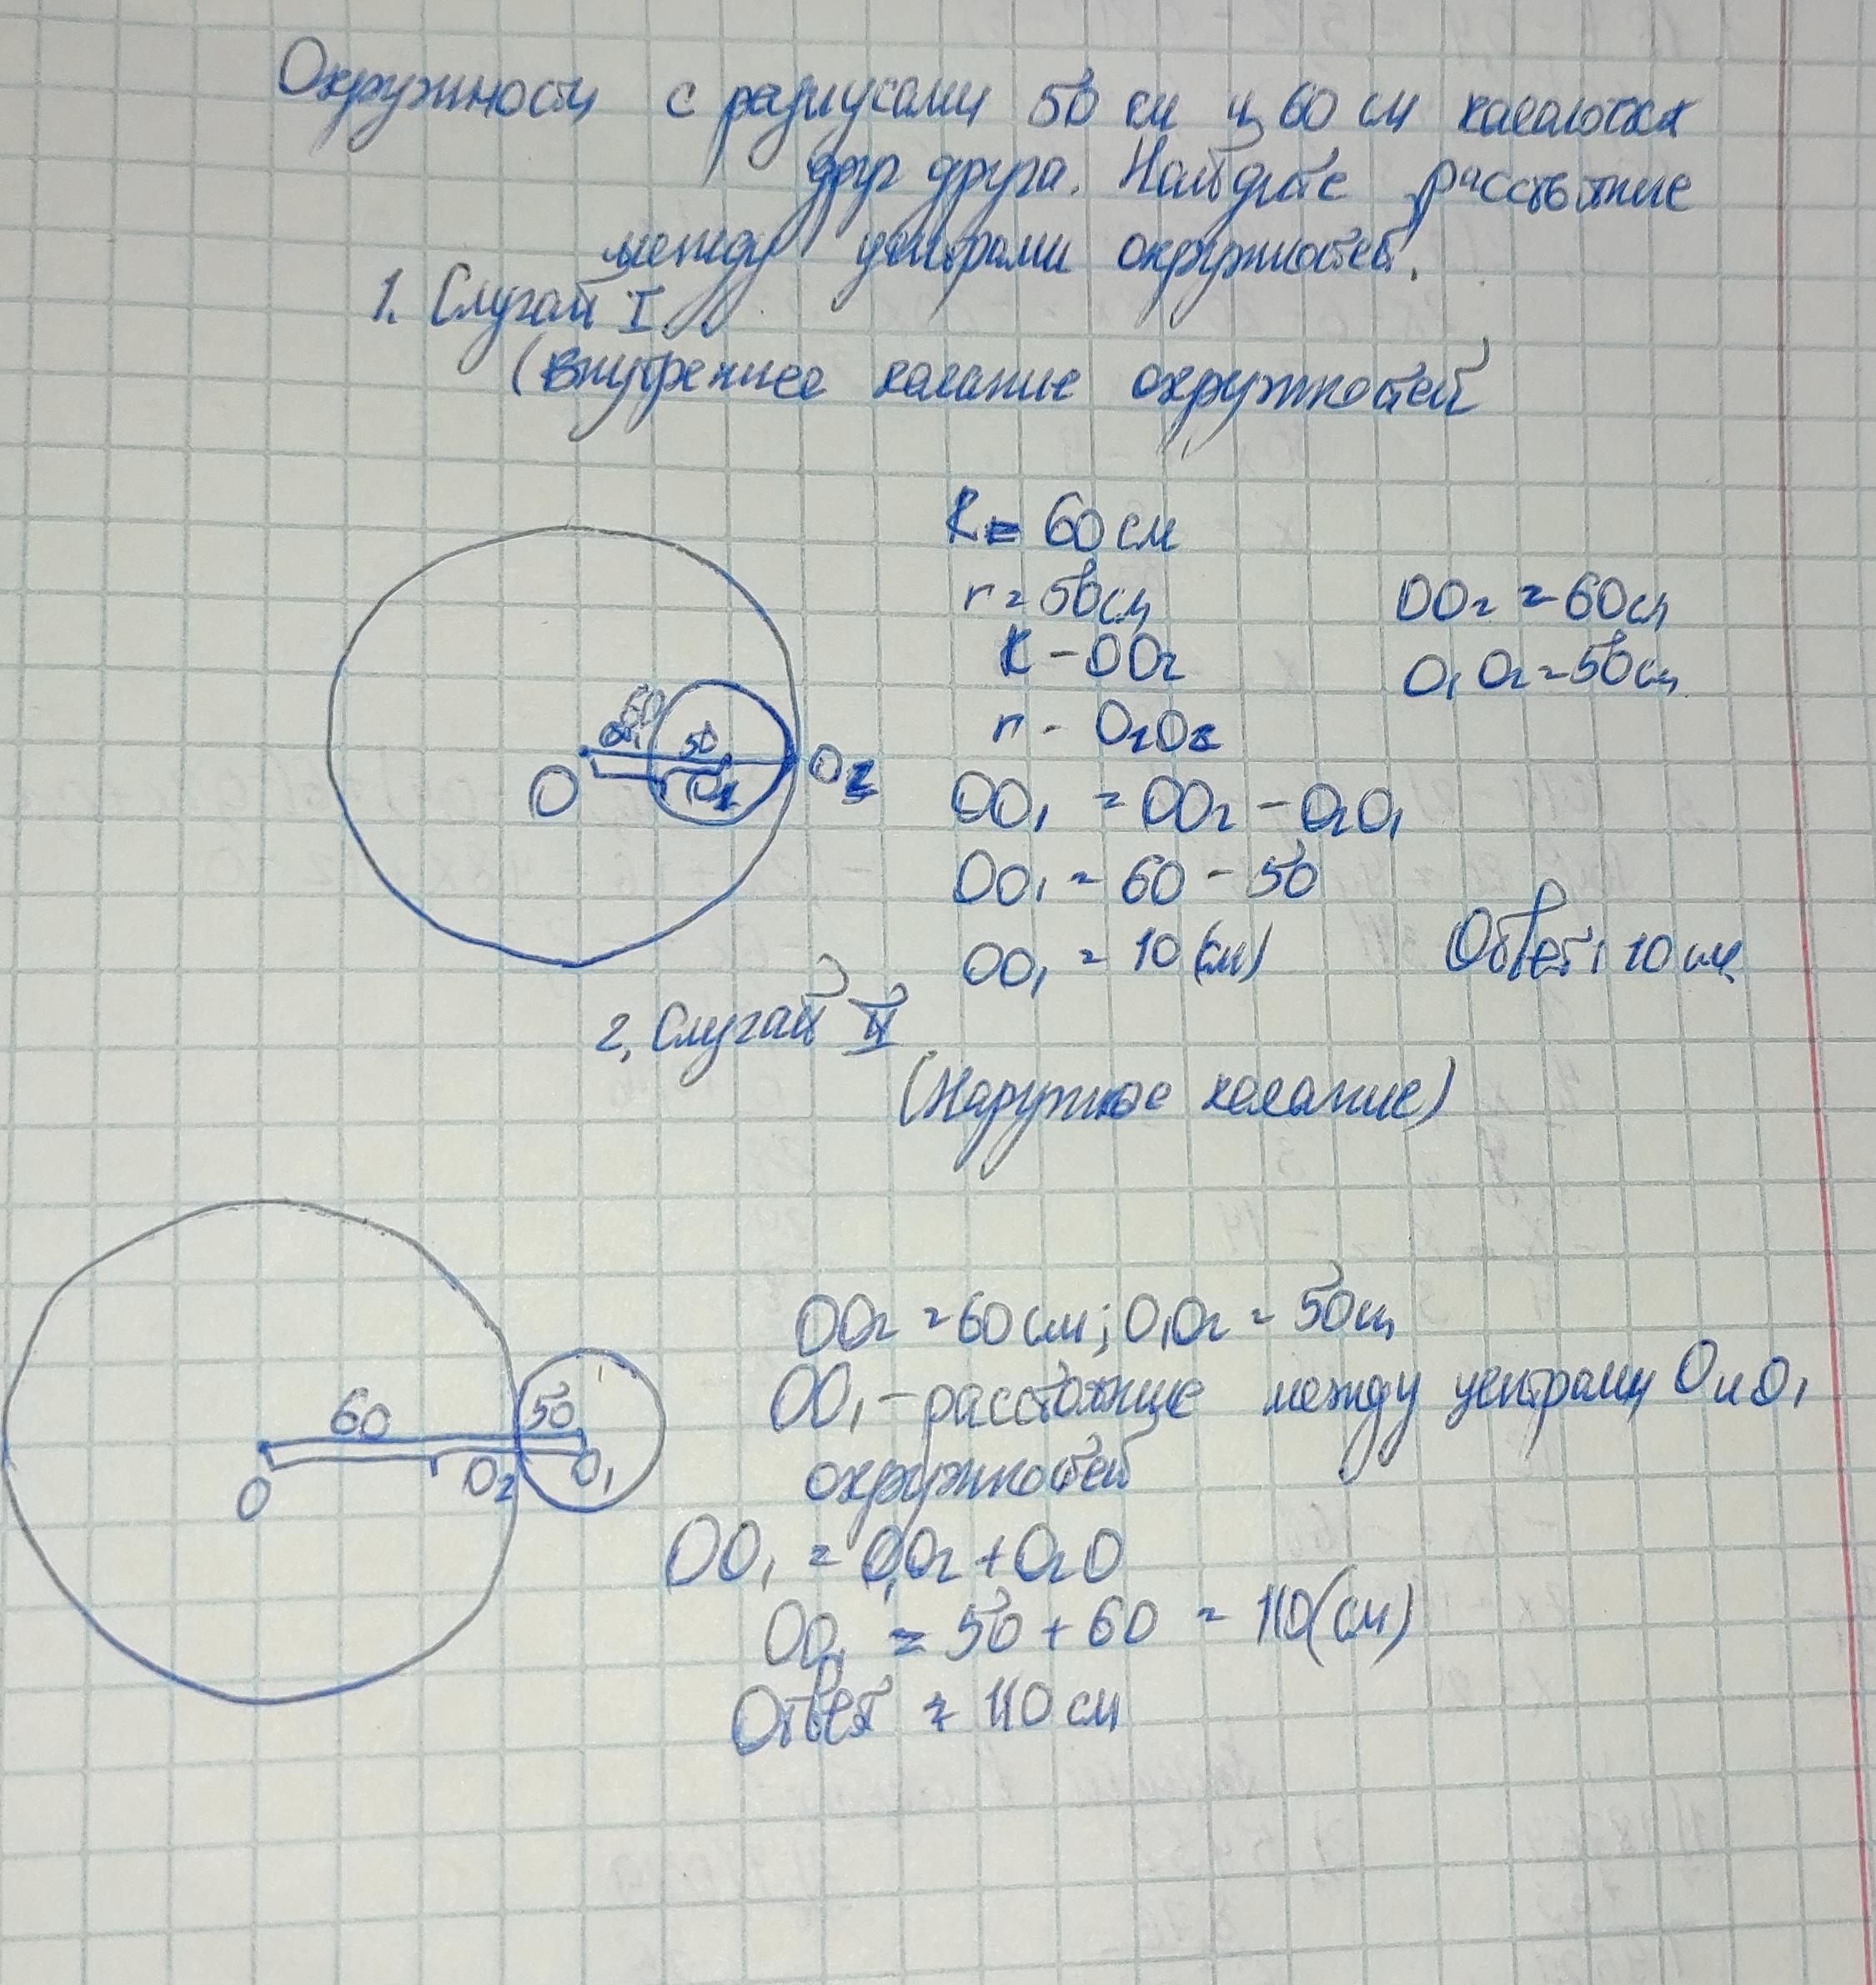 Окружности с радиусами 50 см и 60 см касаются
друг друга. Найдите расстояние
между центрами окружностей.
1. Случай I
(внутреннее касание окружностей)
R = 60 см
r = 50 см
OO₂ = 60 см
R - OO₂
O₁O₂ = 50 см
r - O₁O₂
60
50
O
O₁
O₂
OO₁ = OO₂ - O₂O₁
OO₁ = 60 - 50
OO₁ = 10 (см)
Ответ: 10 см
2. Случай II
(Наружное касание)
60
50
O
O₂
O₁
OO₂ = 60 см; O₁O₂ = 50 см
OO₁ - расстояние между центрами O и O₁
окружностей
OO₁ = O₁O₂ + O₂O
OO₁ = 50 + 60 = 110 (см)
Ответ = 110 см